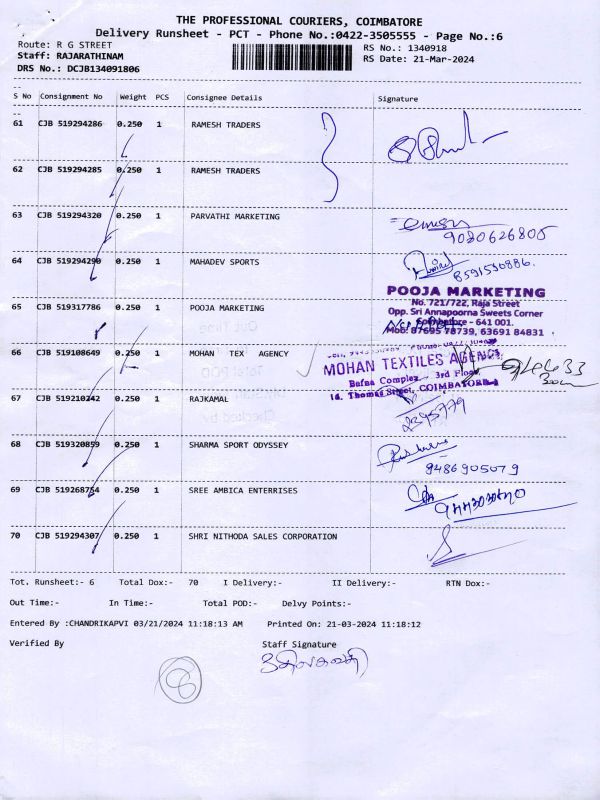 THE PROFESSIONAL COURIERS, COIMBATORE
Delivery Runsheet - PCT - Phone No.:0422-3505555 - Page No.:6
Route: R G STREET
RS No.: 1340918
Staff: RAJARATHINAM
RS Date: 21-Mar-2024
DRS No.: DCJB134091806
S No Consignment No Weight PCS Consignee Details Signature
61 CJB 519294286 0.250 1 RAMESH TRADERS
62 CJB 519294285 0.250 1 RAMESH TRADERS
63 CJB 519294320 0.250 1 PARVATHI MARKETING
9030626805
64 CJB 519294290 0.250 1 MAHADEV SPORTS
8591530886.
POOJA MARKETING
No. 721/722, Raja Street
Opp. Sri Annapoorna Sweets Corner
Coimbatore - 641 001.
Mob: 87695 78739, 63691 84831
65 CJB 519317786 0.250 1 POOJA MARKETING
66 CJB 519108649 0.250 1 MOHAN TEX AGENCY
MOHAN TEXTILES AGENCY
Bafna Complex, 3rd Floor,
14, Thomas Street, COIMBATORE-1
67 CJB 519210242 0.250 1 RAJKAMAL
2395779
68 CJB 519320859 0.250 1 SHARMA SPORT ODYSSEY
9486905079
69 CJB 519268754 0.250 1 SREE AMBICA ENTERRISES
70 CJB 519294307 0.250 1 SHRI NITHODA SALES CORPORATION
Tot. Runsheet:- 6 Total Dox:- 70 I Delivery:- II Delivery:- RTN Dox:-
Out Time:- In Time:- Total POD:- Delvy Points:-
Entered By :CHANDRIKAPVI 03/21/2024 11:18:13 AM Printed On: 21-03-2024 11:18:12
Verified By Staff Signature
8